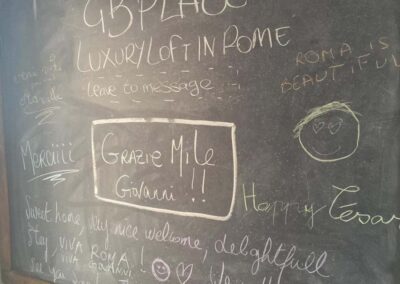 GB PLACE
LUXURY LOFT IN ROME
leave your message
ROMA IS
BEAUTIFUL
Merciiii
GRAZIE Mile
Giovanni !!
Happy Cesar
sweet home, very nice welcome, delightfull
Stay, VIVA ROMA !
VIVA GIOVANNI
See you